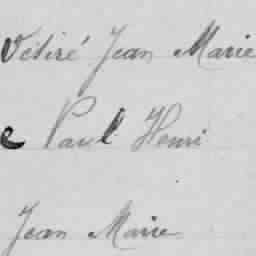 Désiré Jean Marie
e Paul Henri
Jean Marie